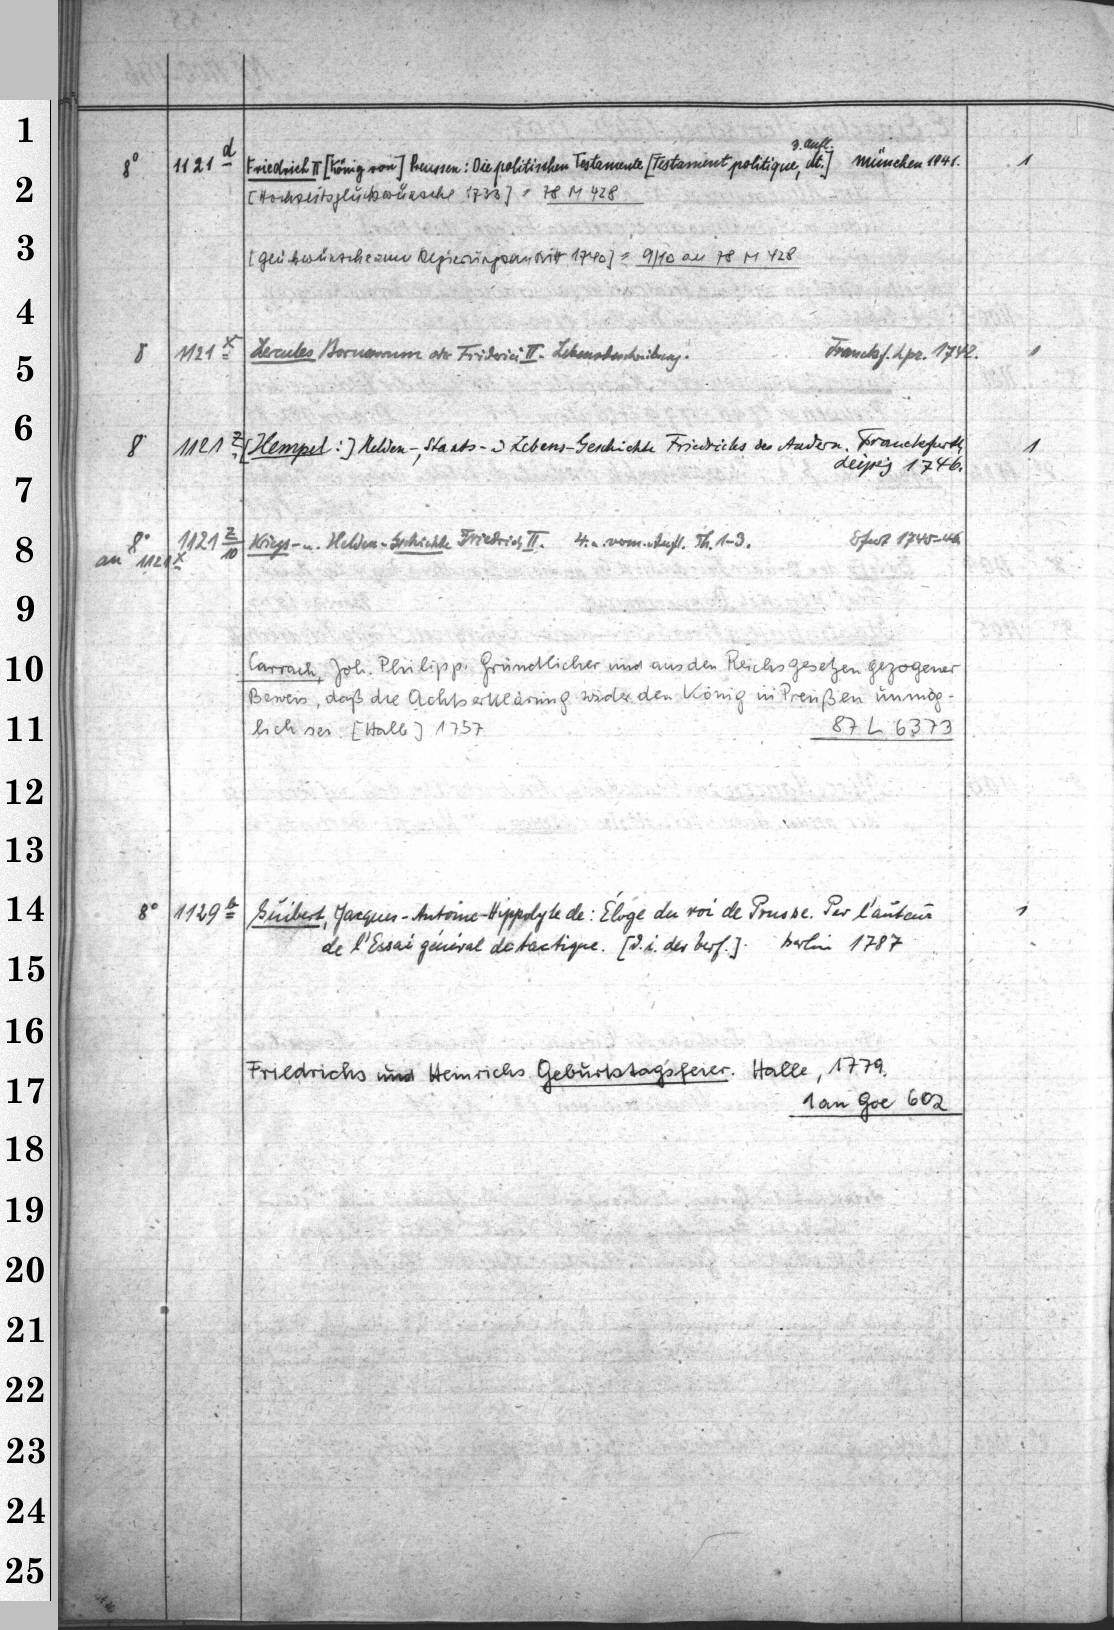 1
2
3
4
5
6
7
8
9
10
11
12
13
14
15
16
17
18
19
20
21
22
23
24
25
3. Aufl.
8° 1121 d Friedrich II [König von] Preussen: Die politischen Testamente [Testament politique, dt.] München 1941. 1
[Hochzeitsglückwünsche 1733] = 78 M 428
[Glückwünsche zum Regierungsantritt 1740] = 9/10 an 78 M 428
8 1121 x Hercules Borussorum oder Friderici II. Lebensbeschreibung. Franckf. Lpz. 1742. 1
8 1121 z [Hempel:] Helden-, Staats- u Lebens-Geschichte Friedrichs des Andern. Franckfurth 1
Leipzig 1746.
8° 1121 z/10 Kriegs- u. Helden-Geschichte Friedrich II. 4. u. verm. Aufl. Th. 1-3. Erfurt 1745-46
an 1121 x
Carrach, Joh. Philipp: Gründlicher und aus den Reichsgesetzen gezogener
Beweis, daß die Achtserklärung wider den König in Preußen unmög-
lich sei. [Halle] 1757 87 L 6373
8° 1129 b Guibert, Jacques-Antoine-Hippolyte de: Éloge du roi de Prusse. Par l'auteur 1
de l'Essai général de tactique. [d. i. der Verf.]. Berlin 1787
Friedrichs und Heinrichs Geburtstagsfeier. Halle, 1779.
1 an Goe 602